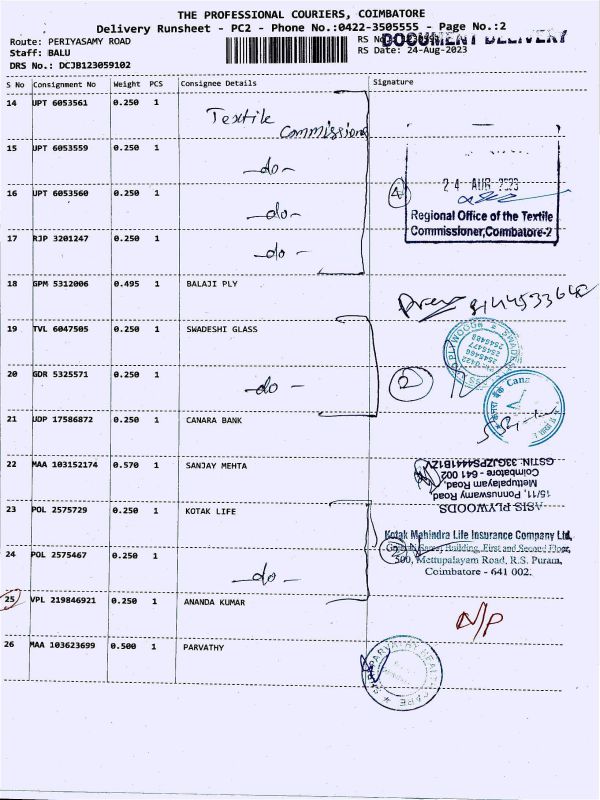 THE PROFESSIONAL COURIERS, COIMBATORE
Delivery Runsheet - PC2 - Phone No.:0422-3505555 - Page No.:2
Route: PERIYASAMY ROAD
Staff: BALU
DRS No.: DCJB123059102
RS No.:
DOCUMENT DELIVERY
RS Date: 24-Aug-2023
S No Consignment No Weight PCS Consignee Details Signature
14 UPT 6053561 0.250 1 Textile Commissioner
15 UPT 6053559 0.250 1 -do-
16 UPT 6053560 0.250 1 -do-
17 RJP 3201247 0.250 1 -do-
4
24 AUG 2023
Regional Office of the Textile
Commissioner, Coimbatore-2
18 GPM 5312006 0.495 1 BALAJI PLY
19 TVL 6047505 0.250 1 SWADESHI GLASS
20 GDR 5325571 0.250 1 -do-
2
21 UDP 17586872 0.250 1 CANARA BANK
22 MAA 103152174 0.570 1 SANJAY MEHTA
ASIS PLYWOODS
15/11, Ponnuswamy Road
Mettupalayam Road,
Coimbatore - 641 002
GSTIN: 33GJZPS4441B1ZV
23 POL 2575729 0.250 1 KOTAK LIFE
24 POL 2575467 0.250 1 -do-
Kotak Mahindra Life Insurance Company Ltd,
Building, First and Second Floor,
500, Mettupalayam Road, R.S. Puram,
Coimbatore - 641 002.
25 VPL 219846921 0.250 1 ANANDA KUMAR N/P
26 MAA 103623699 0.500 1 PARVATHY